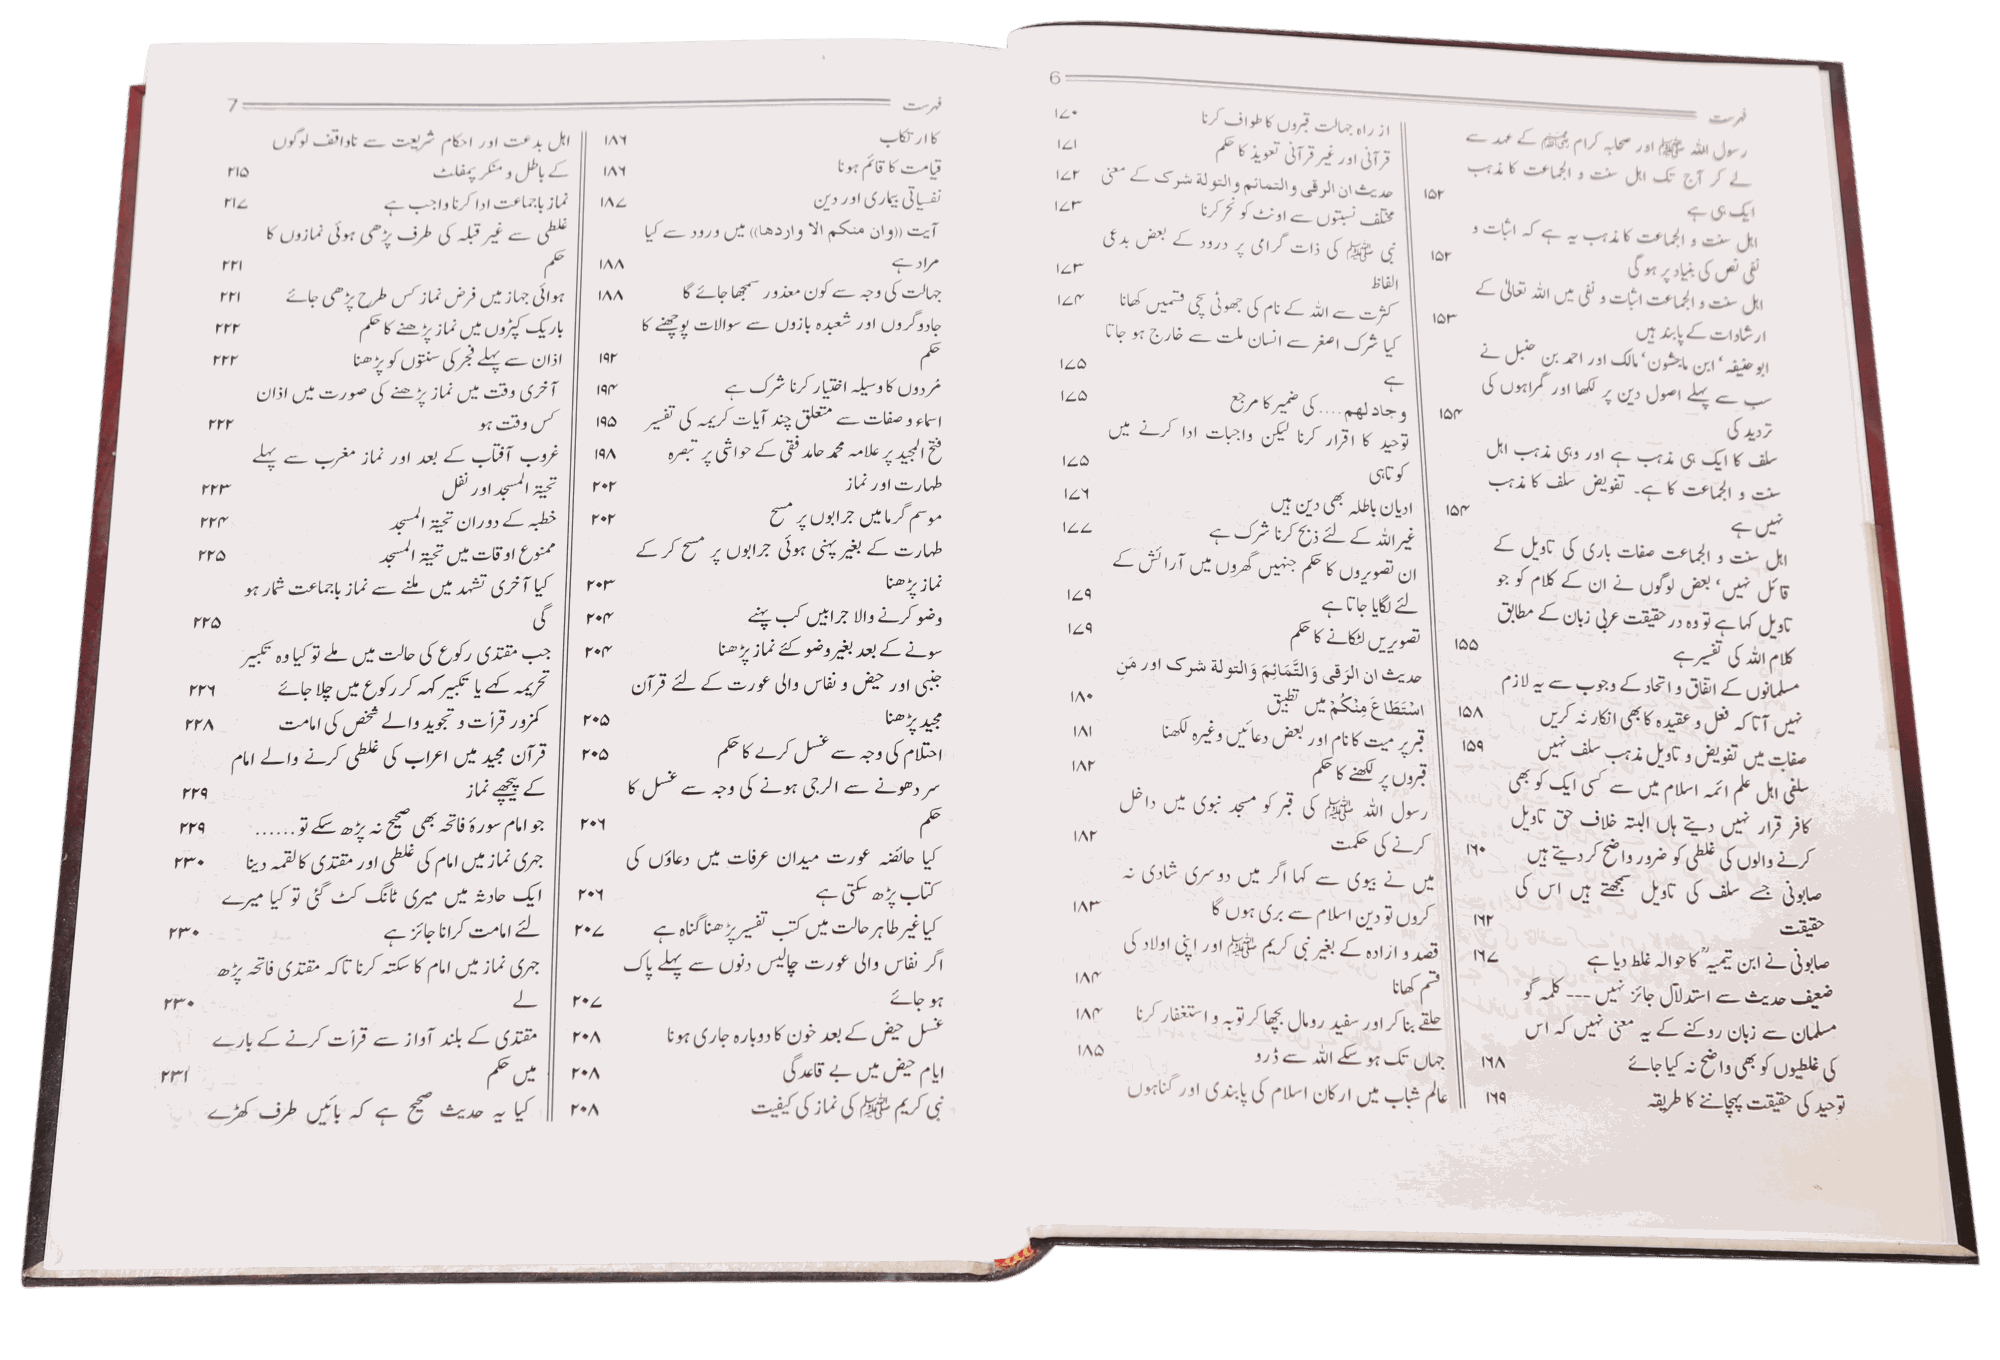 فہرست
6
رسول اللہ ﷺ اور صحابہ کرام ؓ کے عہد سے
لے کر آج تک اہل سنت و الجماعت کا مذہب
ایک ہی ہے ۱۵۲
اہل سنت و الجماعت کا مذہب یہ ہے کہ اثبات و
نفی نص کی بنیاد پر ہو گی ۱۵۲
اہل سنت و الجماعت اثبات و نفی میں اللہ تعالیٰ کے
ارشادات کے پابند ہیں ۱۵۳
ابو حنیفہ‘ ابن ماجشون‘ مالک اور احمد بن حنبل نے
سب سے پہلے اصول دین پر لکھا اور گمراہوں کی
تردید کی ۱۵۴
سلف کا ایک ہی مذہب ہے اور وہی مذہب اہل
سنت و الجماعت کا ہے۔ تفویض سلف کا مذہب
نہیں ہے ۱۵۴
اہل سنت و الجماعت صفات باری کی تاویل کے
قائل نہیں‘ بعض لوگوں نے ان کے کلام کو جو
تاویل کہا ہے تو وہ در حقیقت عربی زبان کے مطابق
کلام اللہ کی تفسیر ہے ۱۵۵
مسلمانوں کے اتفاق و اتحاد کے وجوب سے یہ لازم
نہیں آتا کہ فعل و عقیدہ کا بھی انکار نہ کریں ۱۵۸
صفات میں تفویض و تاویل مذہب سلف نہیں ۱۵۹
سلفی اہل علم ائمہ اسلام میں سے کسی ایک کو بھی
کافر قرار نہیں دیتے ہاں البتہ خلاف حق تاویل
کرنے والوں کی غلطی کو ضرور واضح کر دیتے ہیں ۱۶۰
صابونی جسے سلف کی تاویل سمجھتے ہیں اس کی
حقیقت ۱۶۲
صابونی نے ابن تیمیہ ؒ کا حوالہ غلط دیا ہے ۱۶۷
ضعیف حدیث سے استدلال جائز نہیں --- کلمہ گو
مسلمان سے زبان روکنے کے یہ معنی نہیں کہ اس
کی غلطیوں کو بھی واضح نہ کیا جائے ۱۶۸
توحید کی حقیقت پہچاننے کا طریقہ ۱۶۹
از راہ جہالت قبروں کا طواف کرنا ۱۷۰
قرآنی اور غیر قرآنی تعویذ کا حکم ۱۷۱
حدیث ان الرقی والتمائم والتولة شرک کے معنی ۱۷۲
مختلف نسبتوں سے اونٹ کو نحر کرنا ۱۷۳
نبی ﷺ کی ذات گرامی پر درود کے بعض بدعی
الفاظ ۱۷۳
کثرت سے اللہ کے نام کی جھوٹی سچی قسمیں کھانا ۱۷۴
کیا شرک اصغر سے انسان ملت سے خارج ہو جاتا
ہے ۱۷۵
وجاد لھم .... کی ضمیر کا مرجع ۱۷۵
توحید کا اقرار کرنا لیکن واجبات ادا کرنے میں
کوتاہی ۱۷۵
ادیان باطلہ بھی دین ہیں ۱۷۶
غیر اللہ کے لئے ذبح کرنا شرک ہے ۱۷۷
ان تصویروں کا حکم جنہیں گھروں میں آرائش کے
لئے لگایا جاتا ہے ۱۷۹
تصویریں لٹکانے کا حکم ۱۷۹
حدیث ان الرَقی وَالتَّمَائِمَ وَالتولة شرک اور مَنِ
اسْتَطَاعَ مِنْكُمْ میں تطبیق ۱۸۰
قبر پر میت کا نام اور بعض دعائیں وغیرہ لکھنا ۱۸۱
قبروں پر لکھنے کا حکم ۱۸۲
رسول اللہ ﷺ کی قبر کو مسجد نبوی میں داخل
کرنے کی حکمت ۱۸۲
میں نے بیوی سے کہا اگر میں دوسری شادی نہ
کروں تو دین اسلام سے بری ہوں گا ۱۸۳
قصد و ارادہ کے بغیر نبی کریم ﷺ اور اپنی اولاد کی
قسم کھانا ۱۸۴
حلقے بنا کر اور سفید رومال بچھا کر توبہ و استغفار کرنا ۱۸۴
جہاں تک ہو سکے اللہ سے ڈرو ۱۸۵
عالم شباب میں ارکان اسلام کی پابندی اور گناہوں
فہرست
7
کا ارتکاب ۱۸۶
قیامت کا قائم ہونا ۱۸۶
نفسیاتی بیماری اور دین ۱۸۷
آیت ((وان منکم الا واردھا)) میں ورود سے کیا
مراد ہے ۱۸۸
جہالت کی وجہ سے کون معذور سمجھا جائے گا ۱۸۸
جادوگروں اور شعبدہ بازوں سے سوالات پوچھنے کا
حکم ۱۹۲
مُردوں کا وسیلہ اختیار کرنا شرک ہے ۱۹۴
اسماء و صفات سے متعلق چند آیات کریمہ کی تفسیر ۱۹۵
فتح المجید پر علامہ محمد حامد فقی کے حواشی پر تبصرہ ۱۹۸
طہارت اور نماز ۲۰۲
موسم گرما میں جرابوں پر مسح ۲۰۲
طہارت کے بغیر پہنی ہوئی جرابوں پر مسح کر کے
نماز پڑھنا ۲۰۳
وضو کرنے والا جرابیں کب پہنے ۲۰۴
سونے کے بعد بغیر وضو کئے نماز پڑھنا ۲۰۴
جنبی اور حیض و نفاس والی عورت کے لئے قرآن
مجید پڑھنا ۲۰۵
احتلام کی وجہ سے غسل کرے کا حکم ۲۰۵
سر دھونے سے الرجی ہونے کی وجہ سے غسل کا
حکم ۲۰۶
کیا حائضہ عورت میدان عرفات میں دعاؤں کی
کتاب پڑھ سکتی ہے ۲۰۶
کیا غیر طاہر حالت میں کتب تفسیر پڑھنا گناہ ہے ۲۰۷
اگر نفاس والی عورت چالیس دنوں سے پہلے پاک
ہو جائے ۲۰۷
غسل حیض کے بعد خون کا دوبارہ جاری ہونا ۲۰۸
ایام حیض میں بے قاعدگی ۲۰۸
نبی کریم ﷺ کی نماز کی کیفیت ۲۰۸
اہل بدعت اور احکام شریعت سے ناواقف لوگوں
کے باطل و منکر پمفلٹ ۲۱۵
نماز باجماعت ادا کرنا واجب ہے ۲۱۷
غلطی سے غیر قبلہ کی طرف پڑھی ہوئی نمازوں کا
حکم ۲۲۱
ہوائی جہاز میں فرض نماز کس طرح پڑھی جائے ۲۲۱
باریک کپڑوں میں نماز پڑھنے کا حکم ۲۲۲
اذان سے پہلے فجر کی سنتوں کو پڑھنا ۲۲۲
آخری وقت میں نماز پڑھنے کی صورت میں اذان
کس وقت ہو ۲۲۲
غروب آفتاب کے بعد اور نماز مغرب سے پہلے
تحیۃ المسجد اور نفل ۲۲۳
خطبہ کے دوران تحیۃ المسجد ۲۲۴
ممنوع اوقات میں تحیۃ المسجد ۲۲۵
کیا آخری تشہد میں ملنے سے نماز باجماعت شمار ہو
گی ۲۲۵
جب مقتدی رکوع کی حالت میں ملے تو کیا وہ تکبیر
تحریمہ کہے یا تکبیر کہہ کر رکوع میں چلا جائے ۲۲۶
کمزور قرأت و تجوید والے شخص کی امامت ۲۲۸
قرآن مجید میں اعراب کی غلطی کرنے والے امام
کے پیچھے نماز ۲۲۹
جو امام سورۂ فاتحہ بھی صحیح نہ پڑھ سکے تو...... ۲۲۹
جہری نماز میں امام کی غلطی اور مقتدی کا لقمہ دینا ۲۳۰
ایک حادثہ میں میری ٹانگ کٹ گئی تو کیا میرے
لئے امامت کرانا جائز ہے ۲۳۰
جہری نماز میں امام کا سکتہ کرنا تاکہ مقتدی فاتحہ پڑھ
لے ۲۳۰
مقتدی کے بلند آواز سے قرأت کرنے کے بارے
میں حکم ۲۳۱
کیا یہ حدیث صحیح ہے کہ بائیں طرف کھڑے